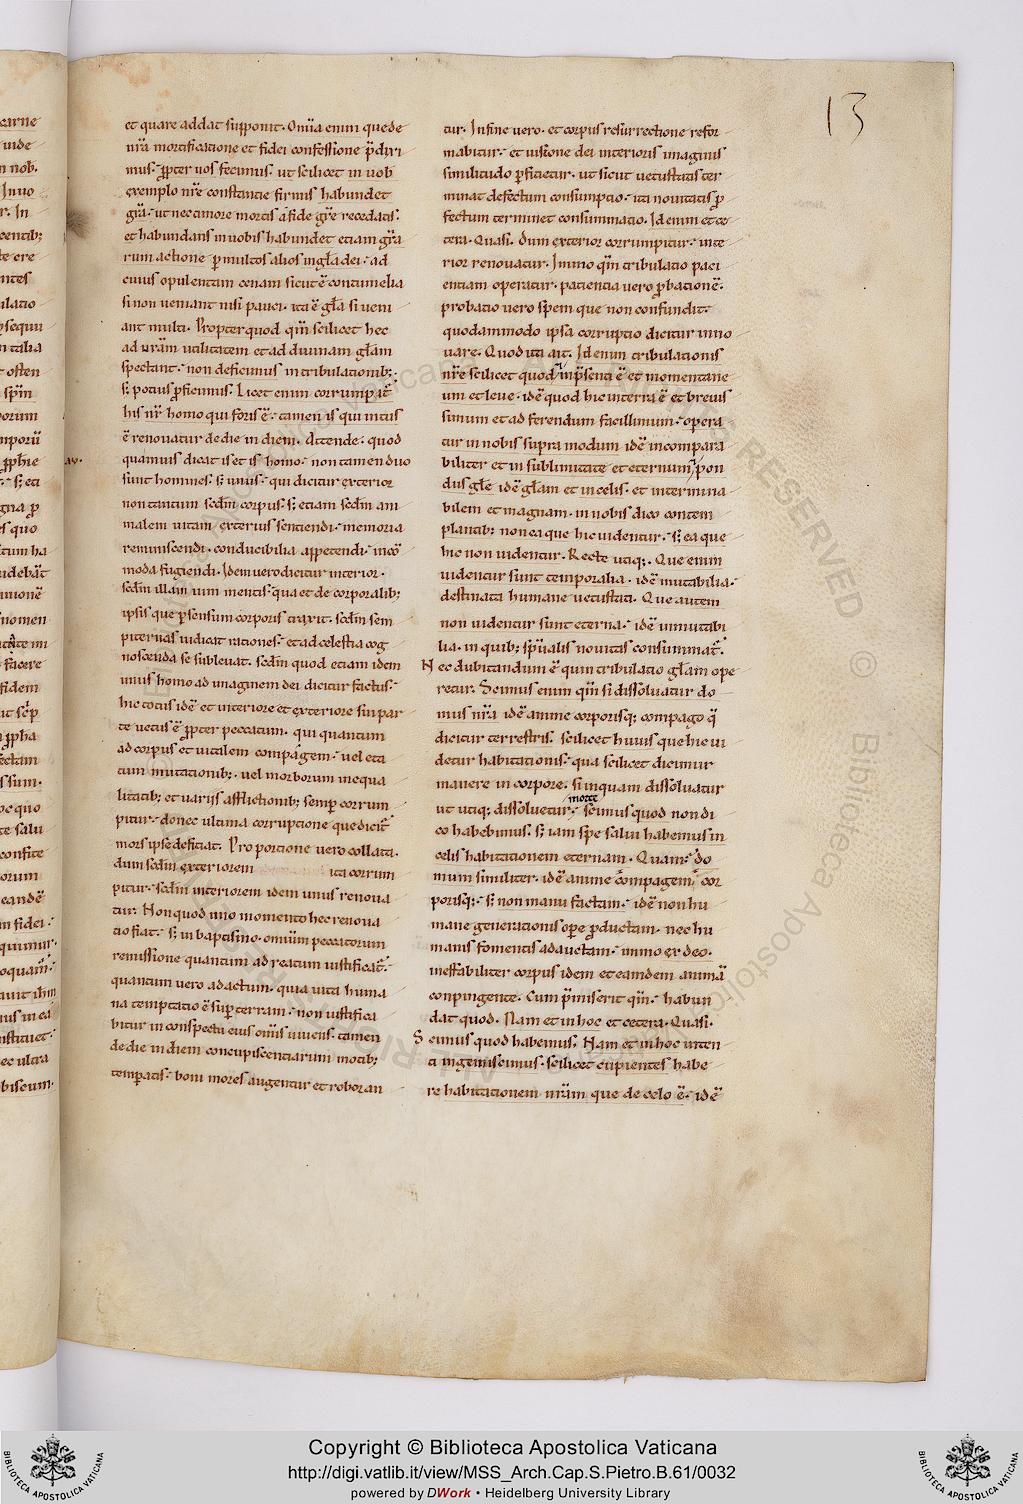 13
et quare addat supponit. Omīa enim que de
nr̄a mortificatione et fidei confessione p̄dixi
mus. ꝓpter uos fecimus. ut scilicet in uob
exemplo nr̄e constantie firmis habundet
gr̄a. ut nec timore mortis a fide xr̄e recedatis.
et habundans in uobis habundet etiam gr̄a
rum actione ꝑ multos alios in gl̄a dei. ad
cuius opulentam cenam sicut ē contumelia
si non ueniant nisi pauci. ita ē gl̄a si ueni
ant multi. Propter quod qm̄ scilicet hec
ad ur̄am utilitatem et ad diuinam gl̄am
spectant. non deficimus in tribulationib;
s; potius ꝓficimus. Licet enim corrumpat̄
his nr̄ homo qui foris ē. tamen is qui intus
ē renouatur de die in diem. Attende. quod
quamuis dicat is et is homo. non tamen duo
sunt homines. s; unus. qui dicitur exterior
non tantum scd̄m corpus. s; etiam scd̄m ani
malem uitam exterius sentiendi. memoria
reminiscendi. conducibilia appetendi. incō
moda fugiendi. Idem uero dicitur interior.
scd̄m illam uim mentis. qua et de corporalib;
ipsis que ꝑ sensum corporis traxit. scd̄m sem
piternas iudicat rationes. et ad celestia cog
noscenda se subleuat. scd̄m quod etiam idem
unus homo ad imaginem dei dicitur factus.
hic totus idē et interiore et exteriore sui par
te uetus ē ꝓpter peccatum. qui quantum
ad corpus et uitalem compagem. uel eta
tum mutationib;. uel morborum inequa
litatib; et uariis afflictionib; semꝑ corrum
pitur. donec ultima corruptione que dicit̄
mors ipse deficiat. Pro portione uero collata.
dum scd̄m exteriorem ita corrum
pitur. scd̄m interiorem idem unus renoua
tur. Non quod uno momento hec renoua
tio fiat. s; in baptismo. omium peccatorum
remissione quantum ad reatum iustificat̄.
quantum uero ad actum. quia uita huma
na temptatio ē suꝑ terram. non iustifica
bitur in conspectu eius om̄is uiuens. tamen
de die in diem concupiscentiarum motib;
temꝑatis. boni mores augentur et roboran
tur. In fine uero. et corpus resurrectione refor
mabitur. et uisione dei interioris imaginis
similitudo ꝑficietur. ut sicut uetustatis ter
minat defectum consumptio. ita nouitatis ꝓ
fectum terminet consummatio. Id enim et ce
tera. Quasi. dum exterior corrumpitur. inte
rior renouatur. Immo qm̄ tribulatio paci
entiam operatur. patientia uero ꝓbationē.
probatio uero spem que non confundit.
quodammodo ipsa corruptio dicitur inno
uare. Quod ita ait. Id enim tribulationis
nr̄e scilicet quod inp̄senti ē et momentane
um et leue. idē quod hic in terra ē et breuis
simum et ad ferendum facillimum. opera
tur in nobis supra modum idē incompara
biliter et in sublimitate et eternum pon
dus gl̄e idē gl̄am et in celis. et intermina
bilem et magnam. in nobis dico contem
plantib; non ea que hic uidentur. s; ea que
hic non uidentur. Recte utiq;. Que enim
uidentur sunt temporalia. idē mutabilia.
destinata humane uetustati. Que autem
non uidentur sunt eterna. idē inmutabi
lia. in quib; sp̄ualis nouitas consummat̄.
Nec dubitandum ē quin tribulatio gl̄am ope
retur. Scimus enim qm̄ si dissoluatur do
mus nr̄a idē anime corporisq; compago q̄
dicitur terrestris. scilicet huius que hic ui
detur habitationis. qua scilicet dicimur
manere in corpore. si inquam dissoluatur
morte
ut utiq; dissoluetur. scimus quod non di
co habebimus. s; iam spe salui habemus in
celis habitationem eternam. Quam. do
mum similiter. idē anime compagem cor
porisq;. s; non manu factam. idē non hu
mane generationis ope ꝓductam. nec hu
manis fomentis adauctam. immo ex deo.
ineffabiliter corpus idem et eamdem animā
conpingente. Cum p̄miserit qm̄. habun
dat quod. Nam et in hoc et cetera. Quasi.
Scimus quod habemus. Nam et in hoc inten
ti ingemiscimus. scilicet cupientes habe
re habitationem nr̄am que de celo ē. idē
Copyright © Biblioteca Apostolica Vaticana
http://digi.vatlib.it/view/MSS_Arch.Cap.S.Pietro.B.61/0032
powered by DWork • Heidelberg University Library